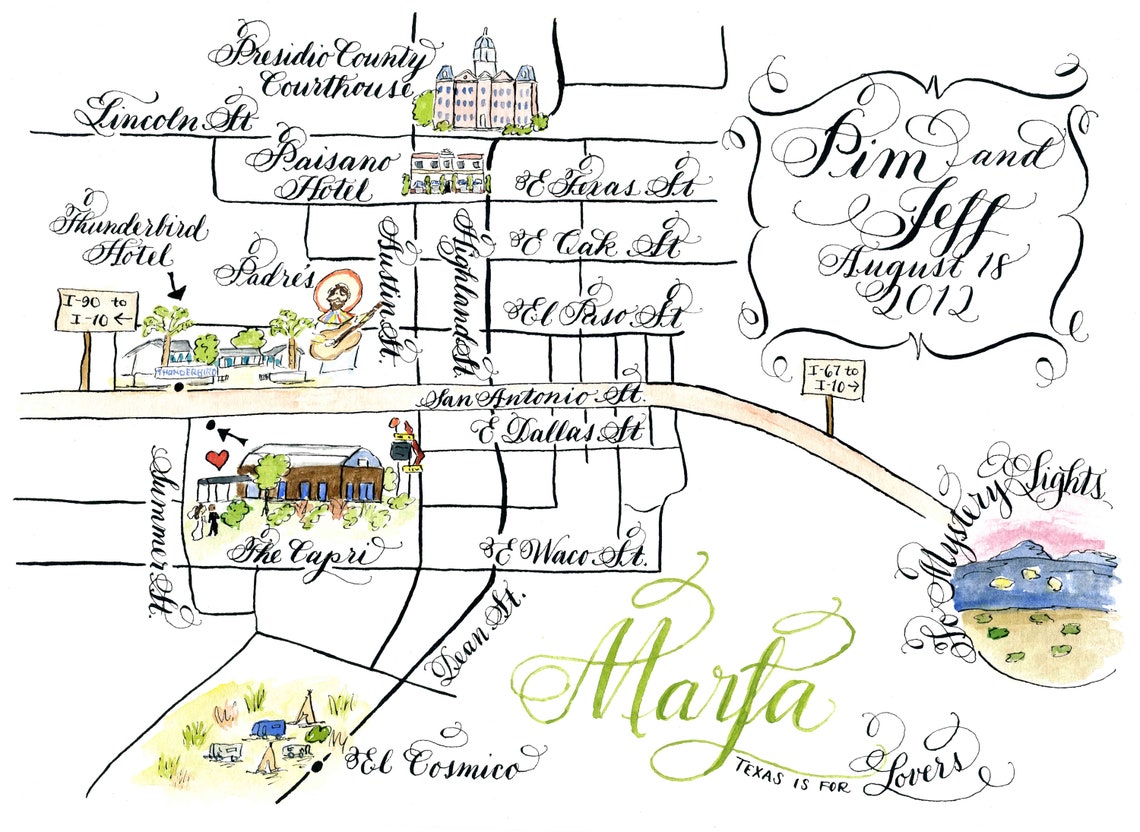 Presidio County
Courthouse
Lincoln St
Paisano
Hotel
E Texas St
Thunderbird
Hotel
Padre's
Austin St.
Highland St.
E Oak St
El Paso St
I-90 to
I-10 ←
THUNDERBIRD
Pim and
Jeff
August 18
2012
I-67 to
I-10 →
San Antonio St.
E Dallas St
Summer St.
The Capri
E Waco St.
Dean St.
To Mystery Lights
El Cosmico
Marfa
TEXAS IS FOR Lovers